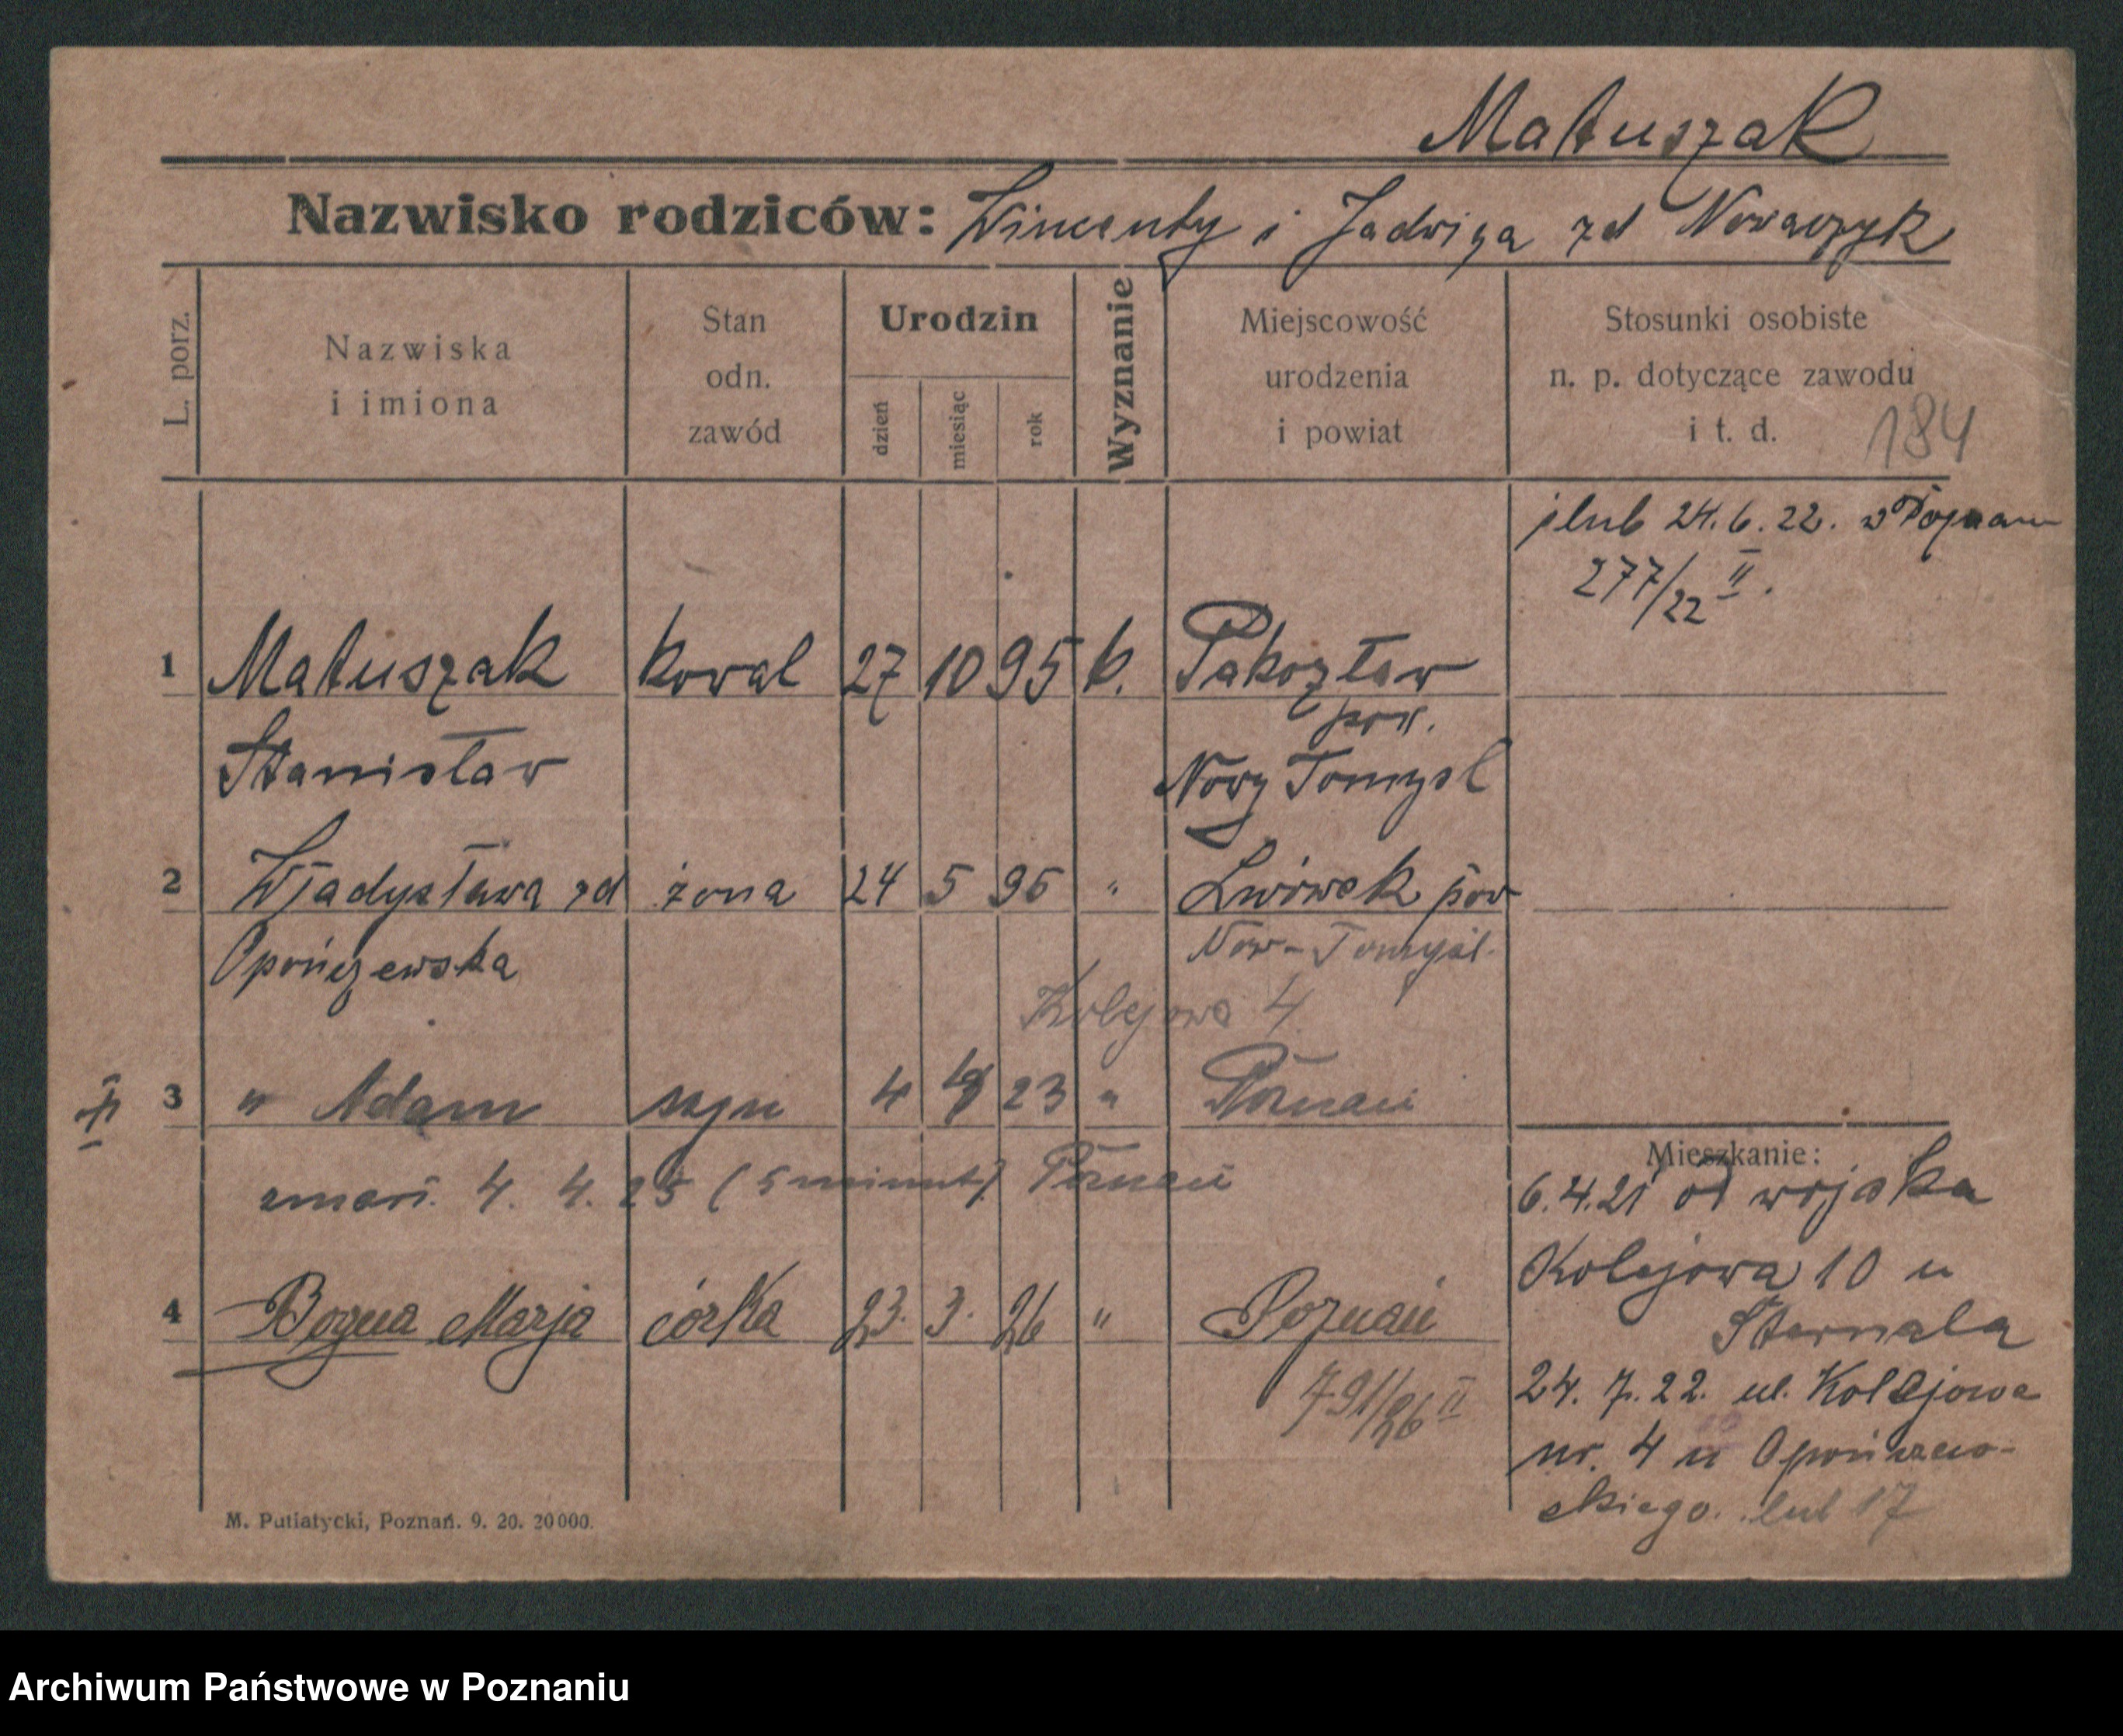 Matuszak
Nazwisko rodziców: Wincenty i Jadwiga zd Nowaczyk
L. porz.
Nazwiska i imiona
Stan odn. zawód
Urodzin
dzień miesiąc rok
Wyznanie
Miejscowość urodzenia i powiat
Stosunki osobiste n. p. dotyczące zawodu i t. d.
184
ślub 24.6.22. w Poznaniu
277/22 II.
1 Matuszak kowal 27 10 95 k. Pakozław
pow.
Stanisław Nowy Tomysl
2 Władysława zd żona 24 5 96 " Lwówek pow
Opończewska Now-Tomyśl.
Kolejowa 4
3 " Adam syn 4 4 23 " Poznań
Mieszkanie:
zmarł. 4. 4. 23 (5 minut) Poznań
6.4.21 od wojska
Kolejowa 10 u
Sternala
4 Bogna Marja córka 23. 3. 26 " Poznań
791/26 II
24. 7. 22. ul. Kolejowa
nr. 4 u Opończew-
skiego. lub 17
M. Putiatycki, Poznań. 9. 20. 20000.
Archiwum Państwowe w Poznaniu